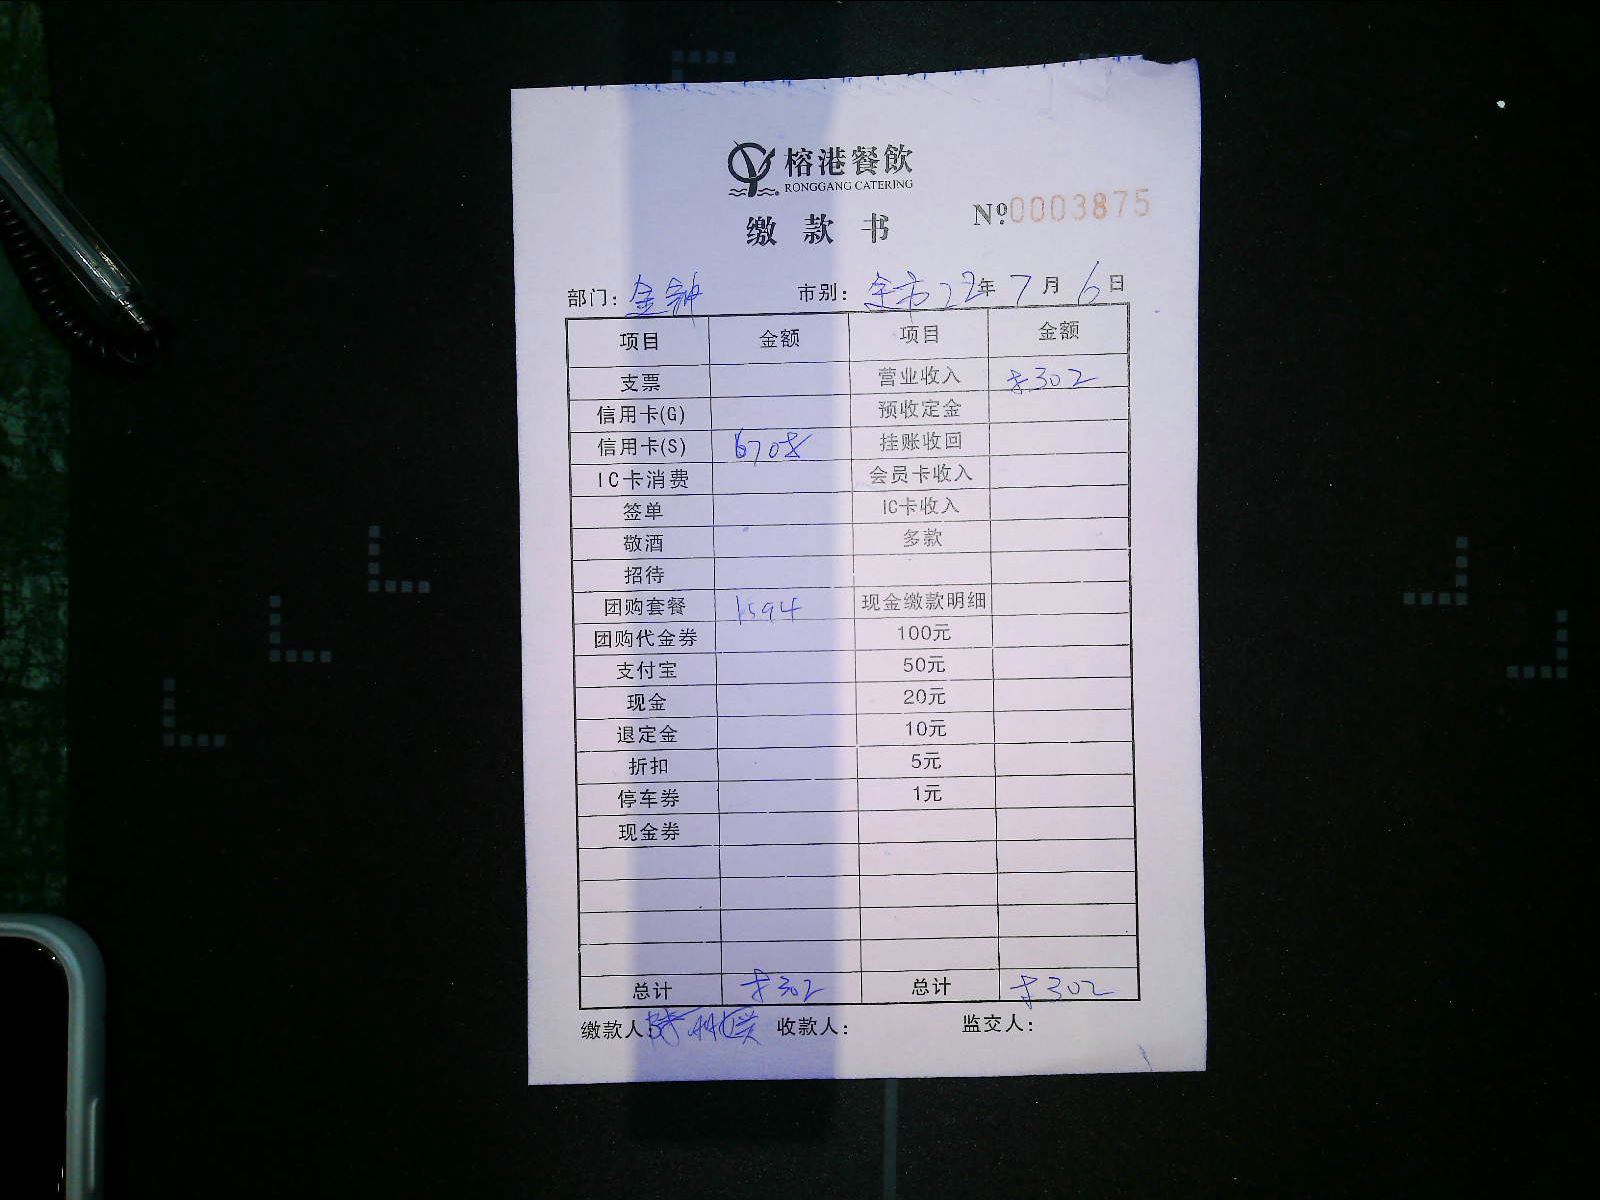 榕港餐飲
RONGGANG CATERING
缴款书
Nº:0003875
部门：金钟 市别：全市 22年7月6日
项目 金额 项目 金额
支票 营业收入 8302
信用卡(G) 预收定金
信用卡(S) 6708 挂账收回
IC卡消费 会员卡收入
签单 IC卡收入
敬酒 多款
招待
团购套餐 1594 现金缴款明细
团购代金券 100元
支付宝 50元
现金 20元
退定金 10元
折扣 5元
停车券 1元
现金券
总计 8302 总计 8302
缴款人： 收款人： 监交人：